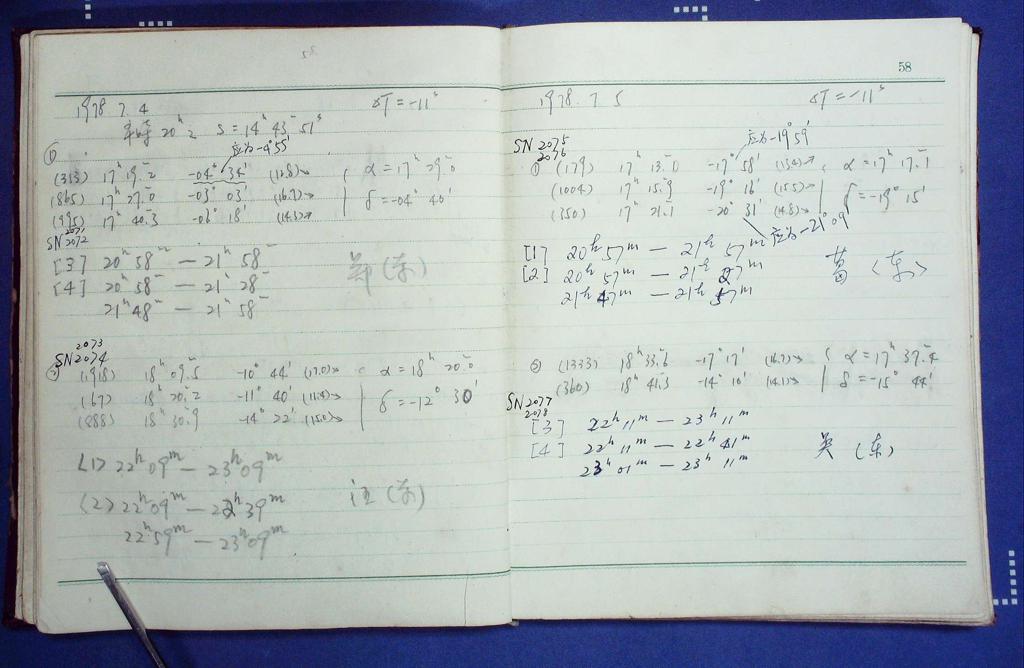 58
1978 7. 4 ΔT = -11ˢ
20ʰ 2 S = 14ʰ 43ᵐ 51ˢ
应为-4°55′
① (313) 17ʰ 19.2 -04° 34′ (12.8)
(865) 17ʰ 27.0 -03° 03′ (16.7)
(995) 17ʰ 40.3 -06° 18′ (14.3)
α = 17ʰ 29.0
δ = -04° 40′
SN 2071
2072
[3] 20ʰ 58ᵐ — 21ʰ 58ᵐ
[4] 20ʰ 58ᵐ — 21ʰ 28ᵐ
21ʰ 48ᵐ — 21ʰ 58ᵐ
郑 (东)
2073
SN 2074
② (1918) 18ʰ 09.5 -10° 44′ (17.0)
(167) 18ʰ 20.2 -11° 40′ (11.4)
(888) 18ʰ 30.9 -14° 22′ (15.0)
α = 18ʰ 20.0
δ = -12° 30′
<1> 22ʰ 09ᵐ — 23ʰ 09ᵐ
<2> 22ʰ 09ᵐ — 22ʰ 39ᵐ
22ʰ 59ᵐ — 23ʰ 09ᵐ
汪 (东)
58
1978. 7. 5 ΔT = -11ˢ
SN 2075
2076
应为-19°59′
① (179) 17ʰ 13.0 -17° 58′ (13.0)
(1004) 17ʰ 15.9 -19° 16′ (15.5)
(350) 17ʰ 21.1 -20° 31′ (14.8)
α = 17ʰ 17.1
δ = -19° 15′
应为-21°09′
[1] 20ʰ 57ᵐ — 21ʰ 57ᵐ
[2] 20ʰ 57ᵐ — 21ʰ 27ᵐ
21ʰ 47ᵐ — 21ʰ 57ᵐ
(东)
② (1333) 18ʰ 33.6 -17° 17′ (16.7)
(360) 18ʰ 41.3 -14° 10′ (14.1)
α = 17ʰ 37.4
δ = -15° 44′
SN 2077
2078
[3] 22ʰ 11ᵐ — 23ʰ 11ᵐ
[4] 22ʰ 11ᵐ — 22ʰ 41ᵐ
23ʰ 01ᵐ — 23ʰ 11ᵐ
吴 (东)